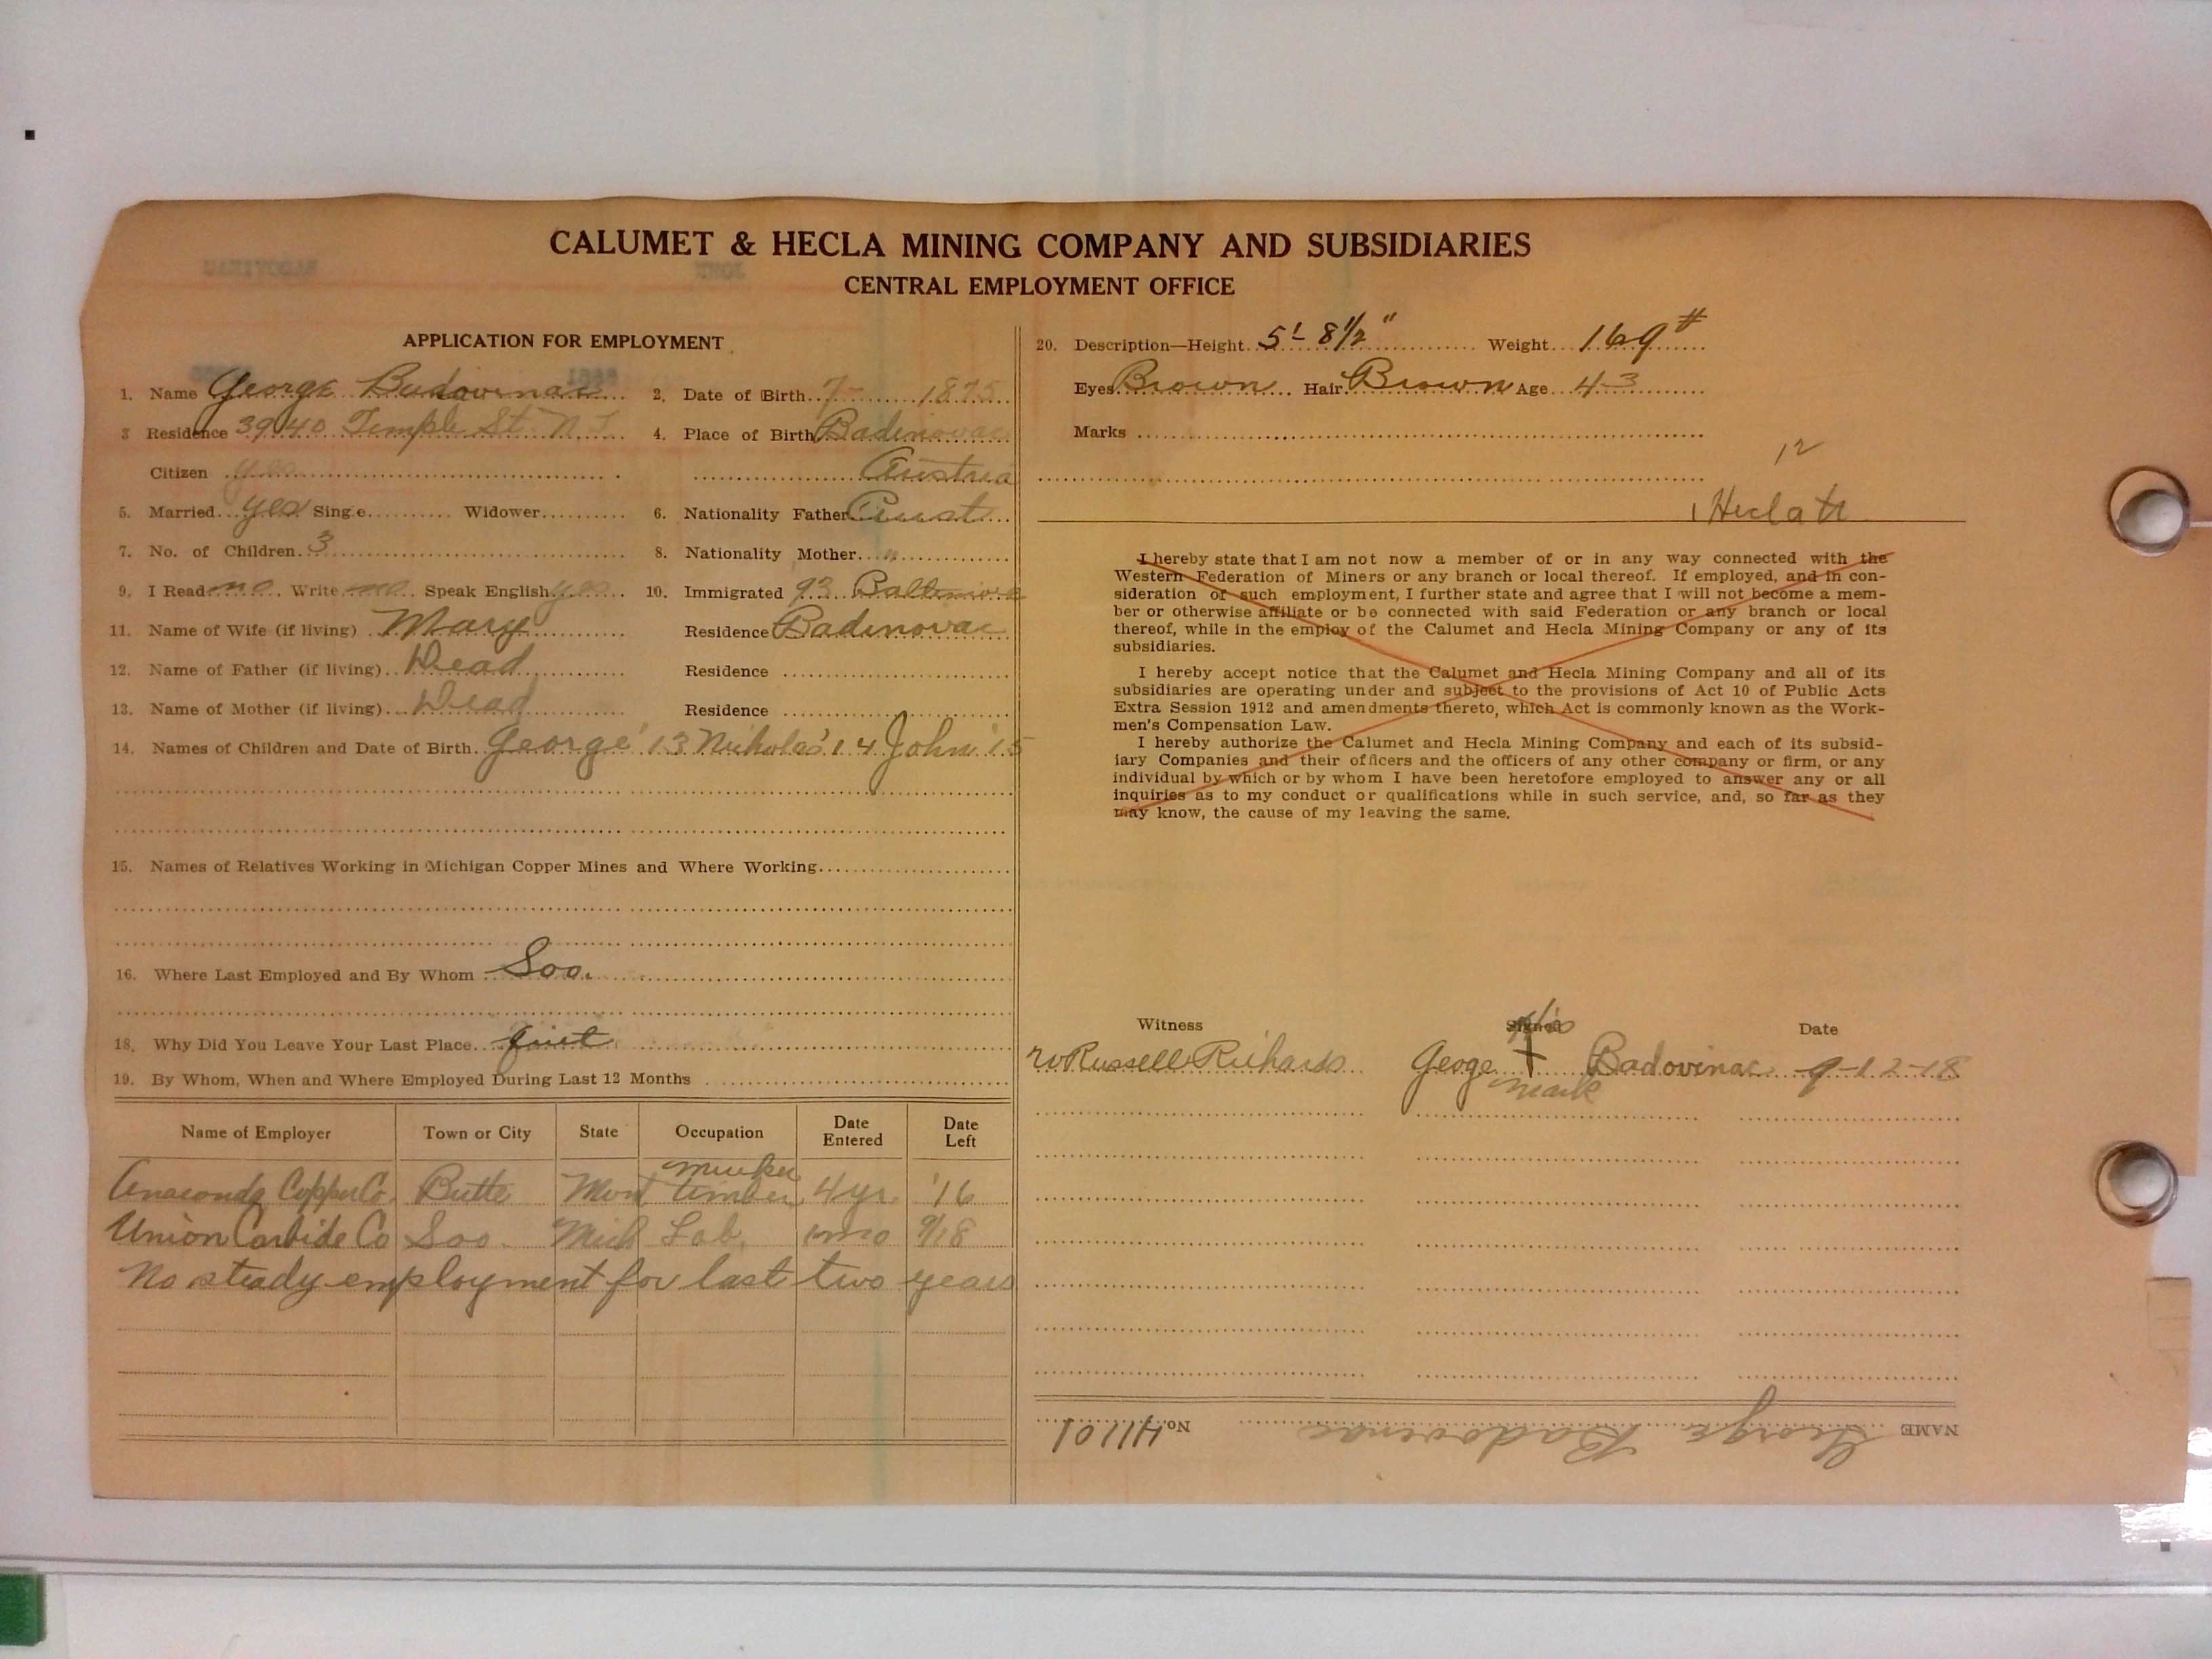 CALUMET & HECLA MINING COMPANY AND SUBSIDIARIES
CENTRAL EMPLOYMENT OFFICE
APPLICATION FOR EMPLOYMENT
1. Name George Badovinac 2. Date of Birth 7- 1875
3 Residence 3940 Temple St. N.
Citizen yes
4. Place of Birth Badinovac
Austria
5. Married yes Single Widower
6. Nationality Father Aust
7. No. of Children 3
8. Nationality Mother "
9. I Read no Write no Speak English yes
10. Immigrated 93 Baltimore
11. Name of Wife (if living) Mary Residence Badinovac
12. Name of Father (if living) Dead Residence
13. Name of Mother (if living) Dead Residence
14. Names of Children and Date of Birth George '13 Nicholas '14 John '15
15. Names of Relatives Working in Michigan Copper Mines and Where Working
16. Where Last Employed and By Whom Soo.
18. Why Did You Leave Your Last Place quit
19. By Whom, When and Where Employed During Last 12 Months
Name of Employer Town or City State Occupation Date Entered Date Left
Anaconda Copper Co. Butte Mont timber 4 yr. '16
Union Carbide Co Soo. Mich Lab. 9/18
No steady employment for last two years
20. Description—Height 5'- 8 1/2" Weight 169#
Eyes Brown Hair Brown Age 43
Marks
12
Hecla
I hereby state that I am not now a member of or in any way connected with the
Western Federation of Miners or any branch or local thereof. If employed, and in con-
sideration of such employment, I further state and agree that I will not become a mem-
ber or otherwise affiliate or be connected with said Federation or any branch or local
thereof, while in the employ of the Calumet and Hecla Mining Company or any of its
subsidiaries.
I hereby accept notice that the Calumet and Hecla Mining Company and all of its
subsidiaries are operating under and subject to the provisions of Act 10 of Public Acts
Extra Session 1912 and amendments thereto, which Act is commonly known as the Work-
men's Compensation Law.
I hereby authorize the Calumet and Hecla Mining Company and each of its subsid-
iary Companies and their officers and the officers of any other company or firm, or any
individual by which or by whom I have been heretofore employed to answer any or all
inquiries as to my conduct or qualifications while in such service, and, so far as they
may know, the cause of my leaving the same.
Witness Signed Date
His
W Russell Richards Geoge + Badovinac 9-12-18
mark
NAME George Badovinac No. H1101